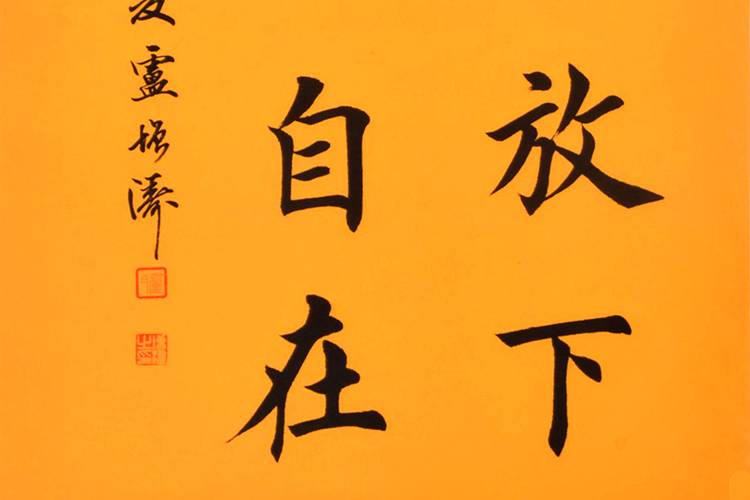 放下
自在
盧振濤